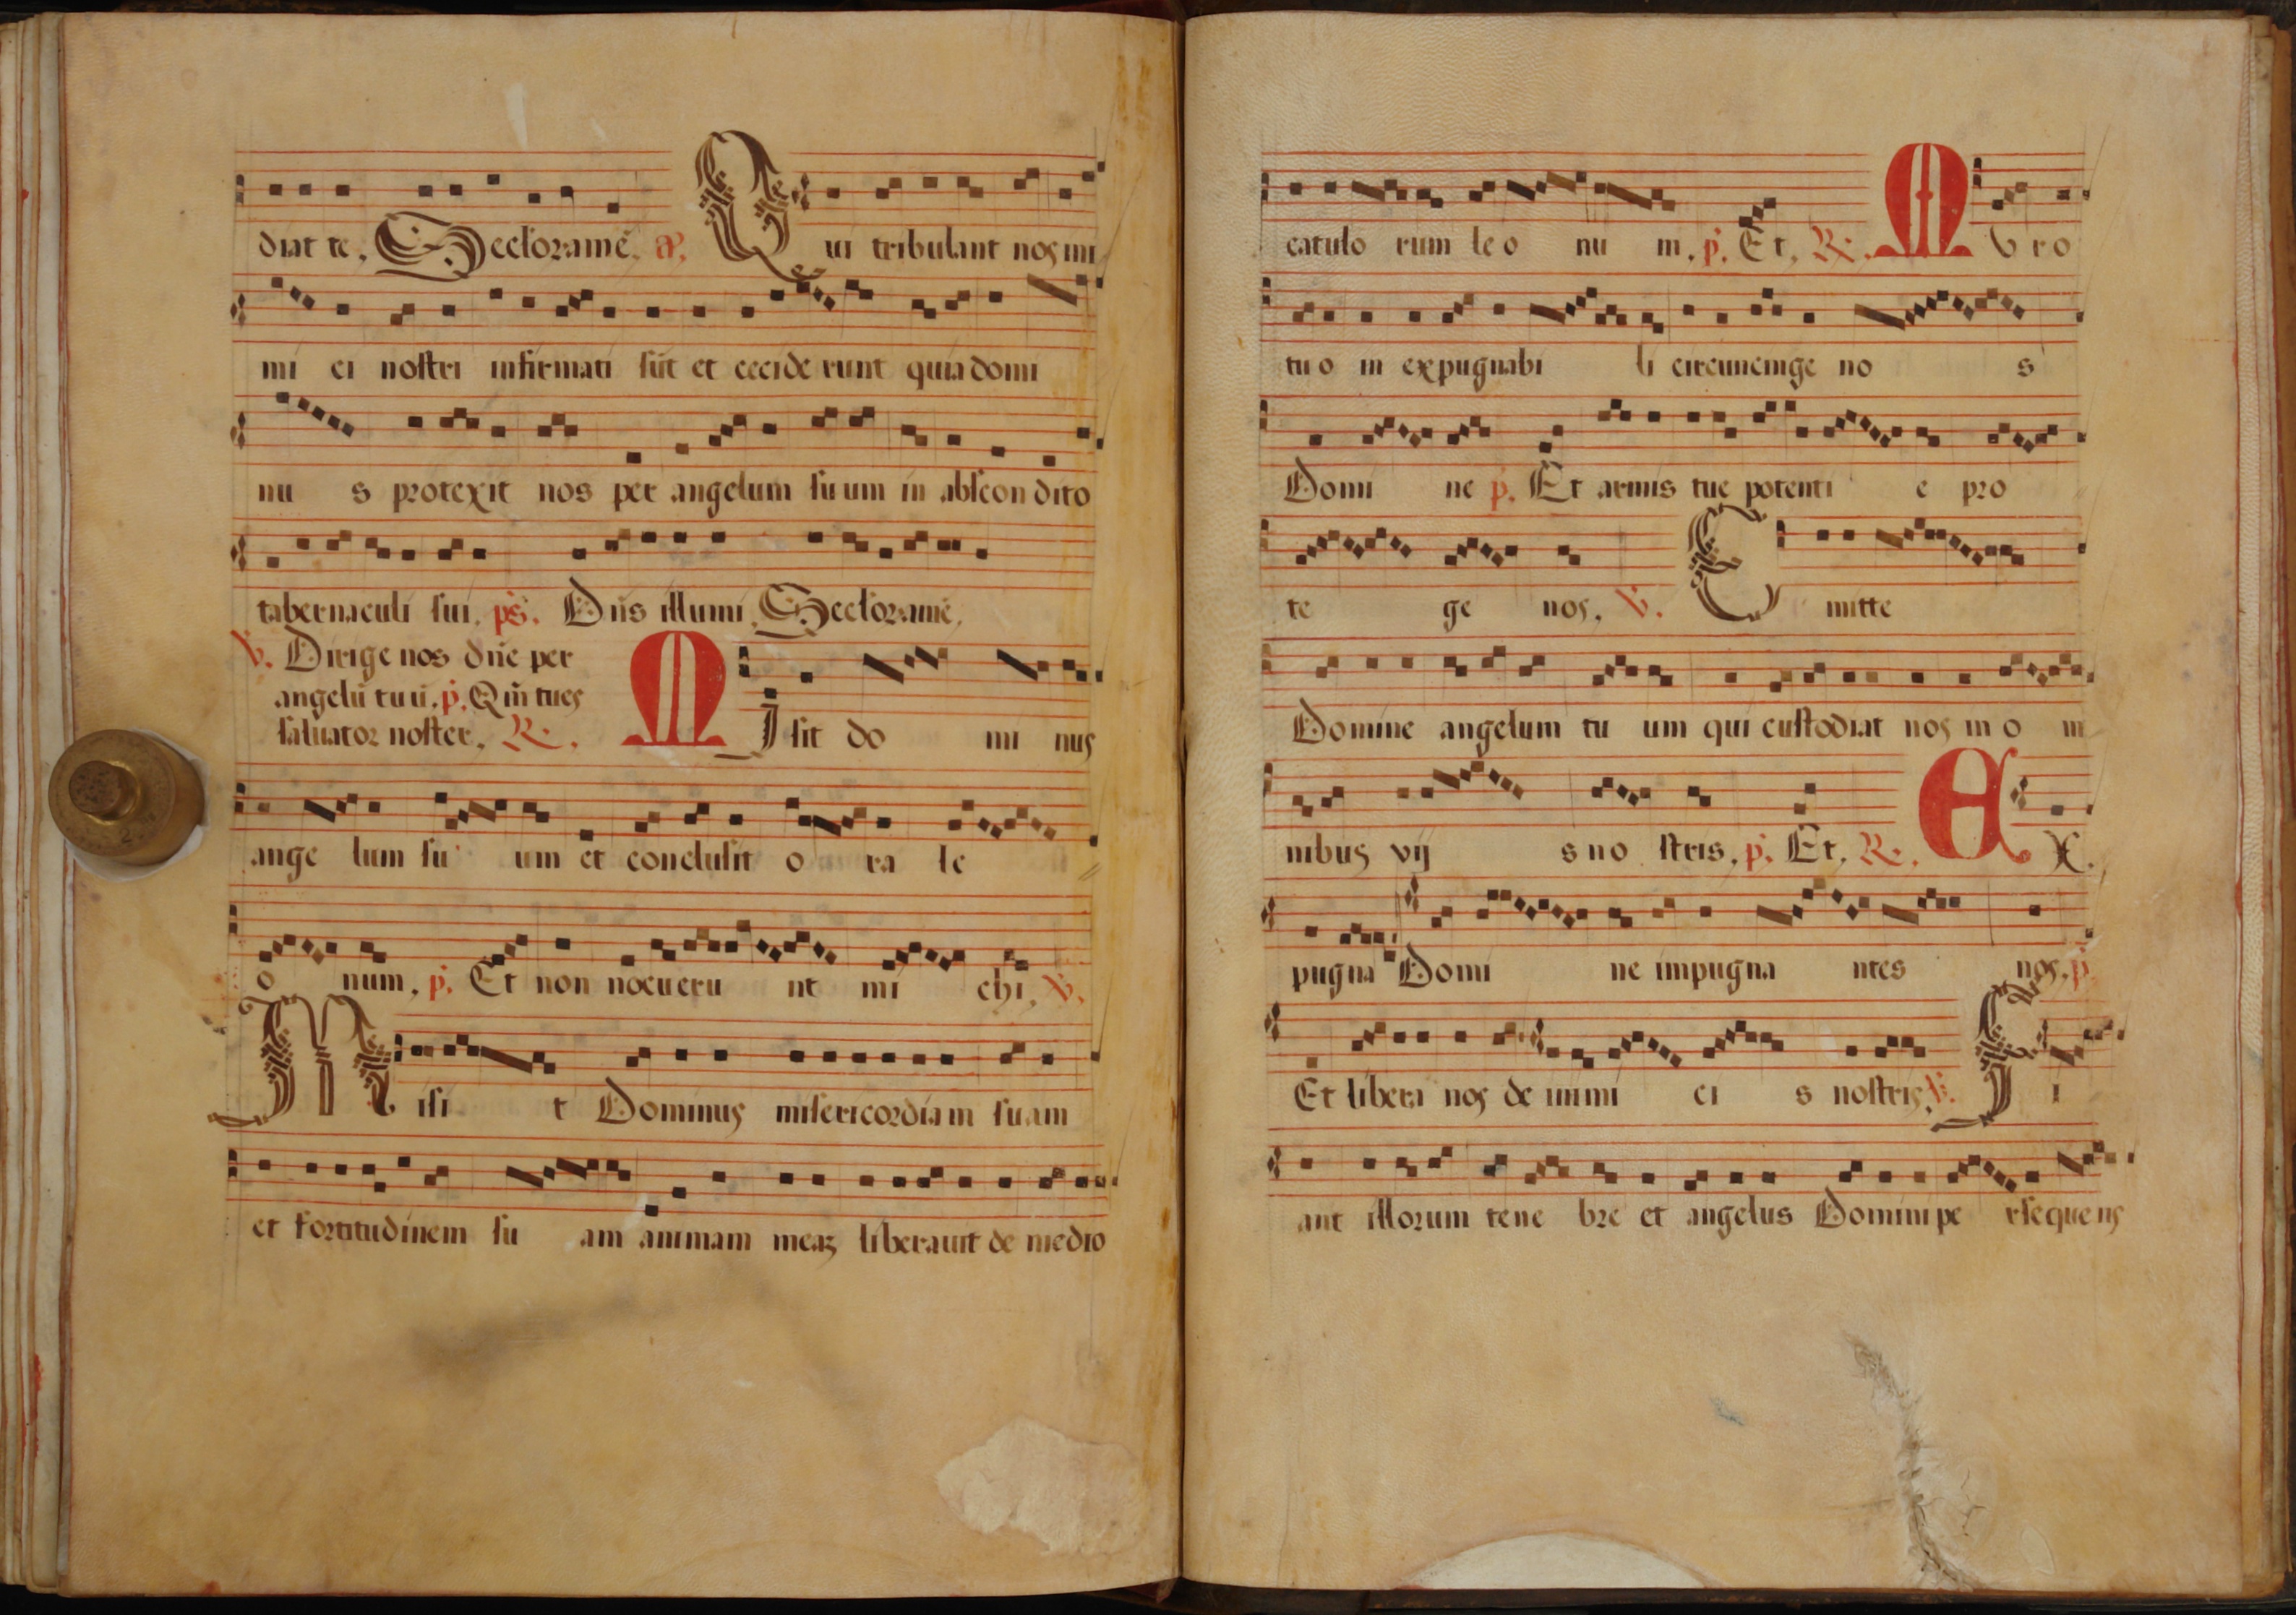 diat te. Seclorame. a. Qui tribulant nos ini
mi ci nostri infirmati sūt et cecide runt quia domi
nu s protexit nos per angelum suum in abscon dito
tabernaculi sui. ps. Dns illumi. Seclorame.
v. Dirige nos dñe per
angelū tuū. p. Qm̃ tu es
saluator noster. R. MIsit do mi nus
ange lum su um et conclusit o ra le
o num. p. Et non nocueru nt mi chi. v.
Misi t Dominus misericordiam suam
et fortitudinem su am animam meaz liberauit de medio
catulo rum le o nu m. p. Et. R. Muro
tuo in expugnabi li circuncinge no s
Domi ne p. Et armis tue potenti e pro
te ge nos. v. E mitte
Domine angelum tu um qui custodiat nos in o m
nibus vij s no stris. p. Et. R. EX.
pugna Domi ne impugna ntes nos. p.
Et libera nos de inimi ci s nostris. v. Fi
ant illorum tene bre et angelus Domini pe rsequens